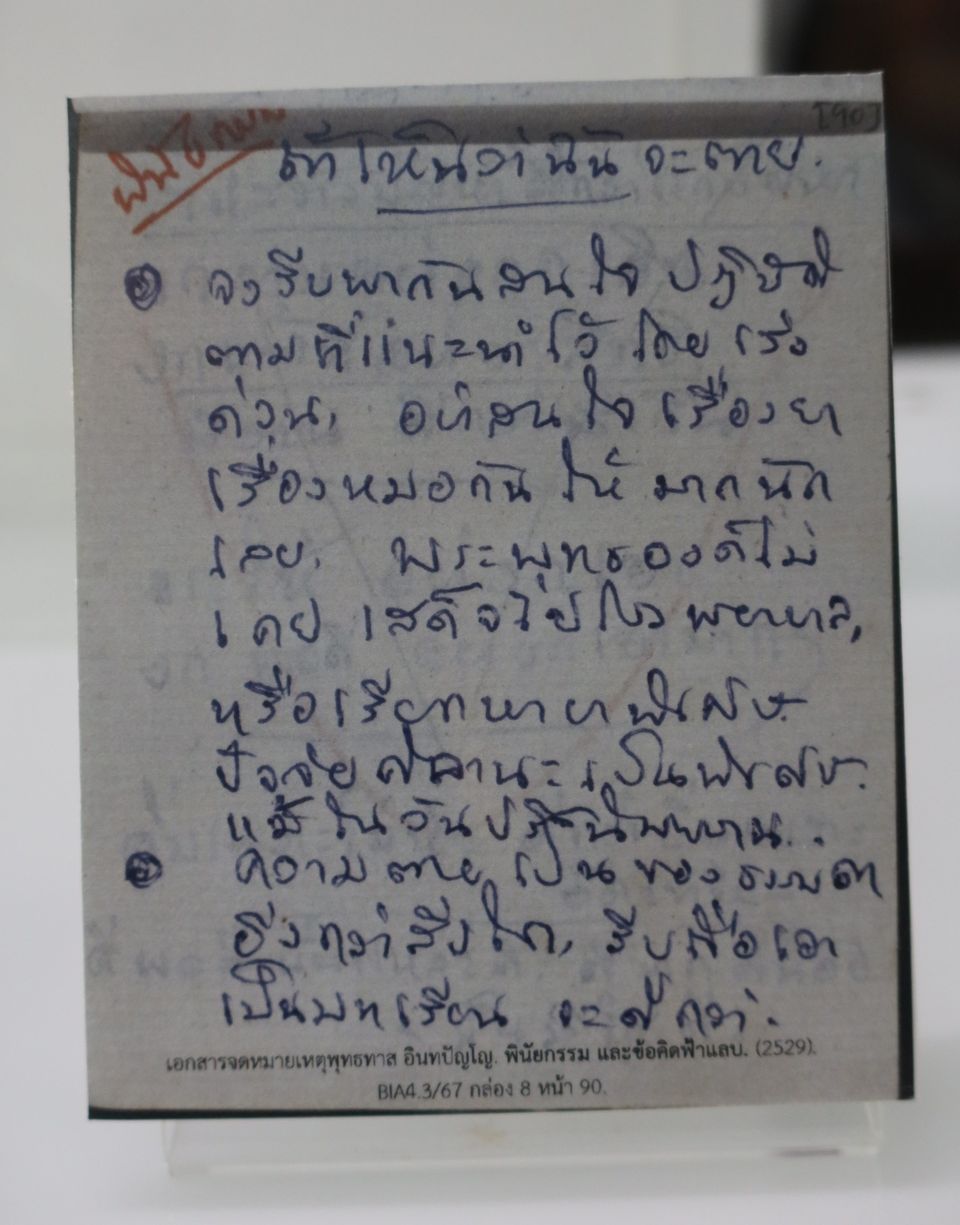 [90]
พินัยกรรม
ถ้าเห็นว่าฉันจะตาย.
จงรีบพากันสนใจปฏิบัติ
ตามที่แนะนำไว้โดยเร่ง
ด่วน, อย่าสนใจเรื่องยา
เรื่องหมอกันให้มากนัก
เลย, พระพุทธองค์ไม่
เคยเสด็จไปโรงพยาบาล,
หรือเรียกหายาพิเศษ.
ปัจจัยคิลานะเป็นพิเศษ.
แม้ในวันปรินิพพาน.
ความตายเป็นของธรรมดา
ยิ่งกว่าสิ่งใด, รีบถือเอา
เป็นบทเรียน จะดีกว่า.
เอกสารจดหมายเหตุพุทธทาส อินทปัญโญ. พินัยกรรม และข้อคิดฟ้าแลบ. (2529).
BIA4.3/67 กล่อง 8 หน้า 90.